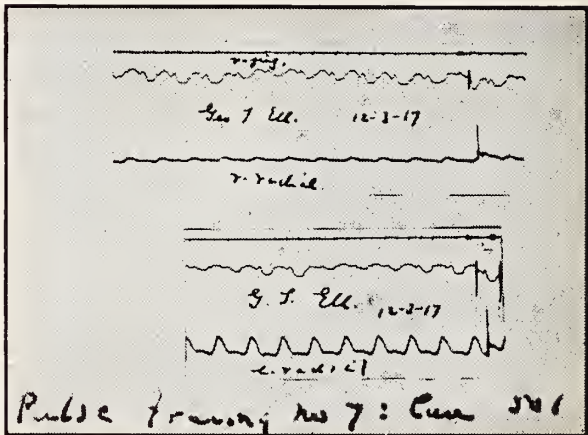 r-jug.
Geo T Ell. 12-3-17
r-radial
G. T. Ell. 12-3-17
l-radial
Pulse tracing no 7: Case